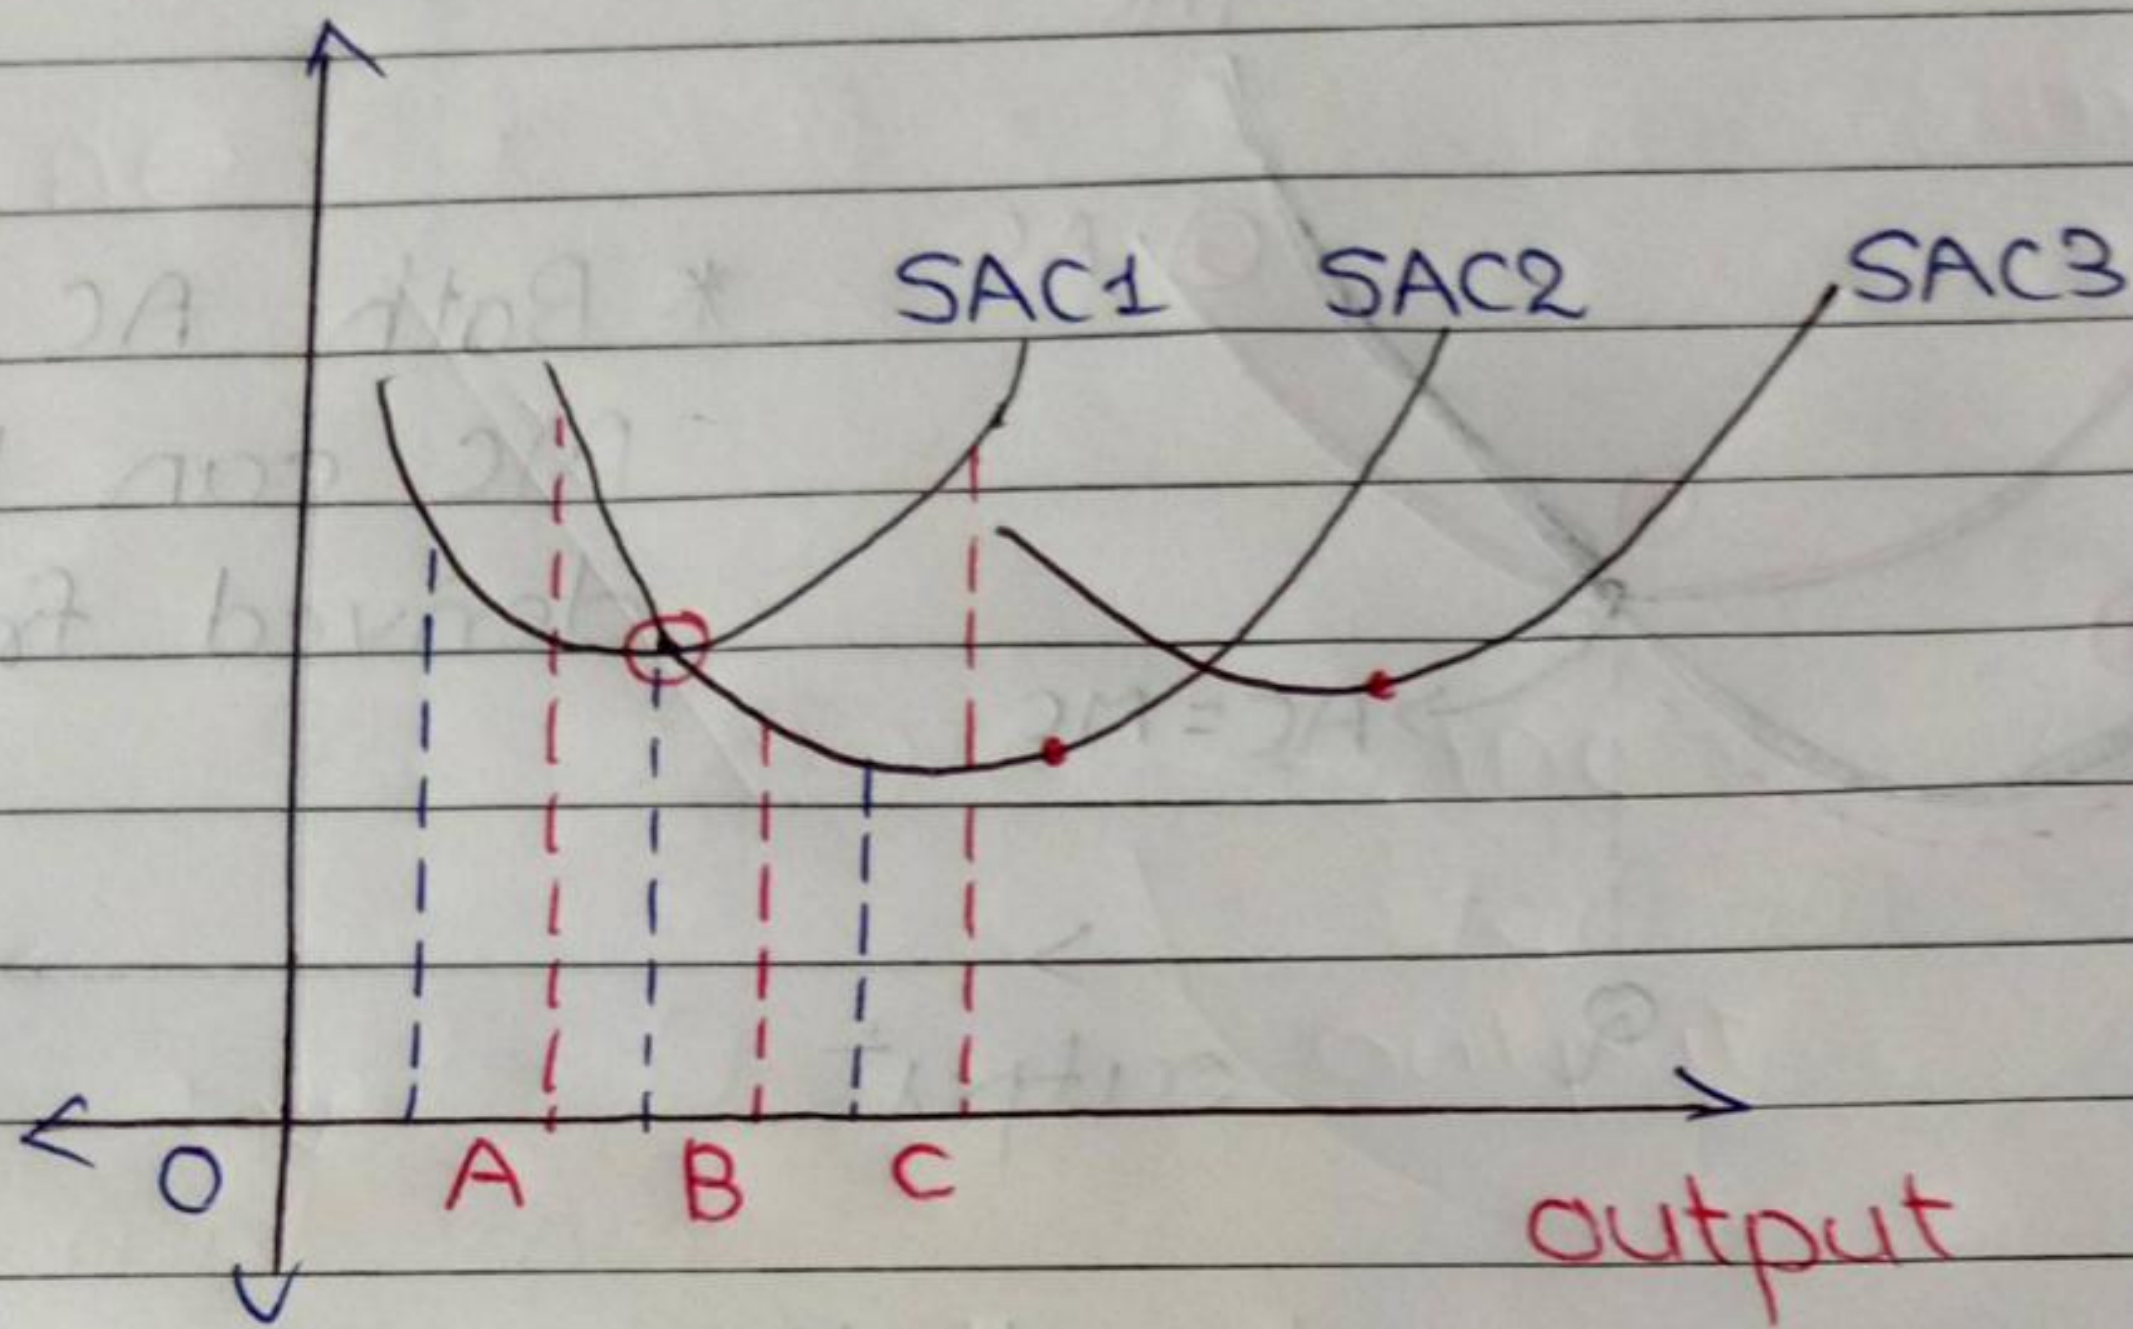 SAC1 SAC2 SAC3
O A B C
output